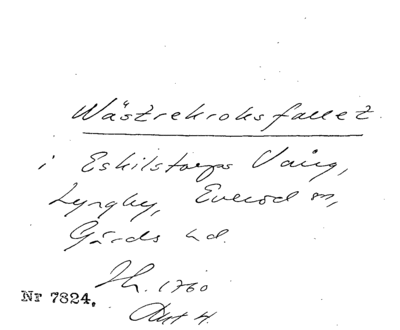 Wästrekroksfallet.
i Eskilstorps Vång,
Lyngby, Everöd sn,
Gärds hd.
Lh. 1760
Nr 7824.
Akt 4.